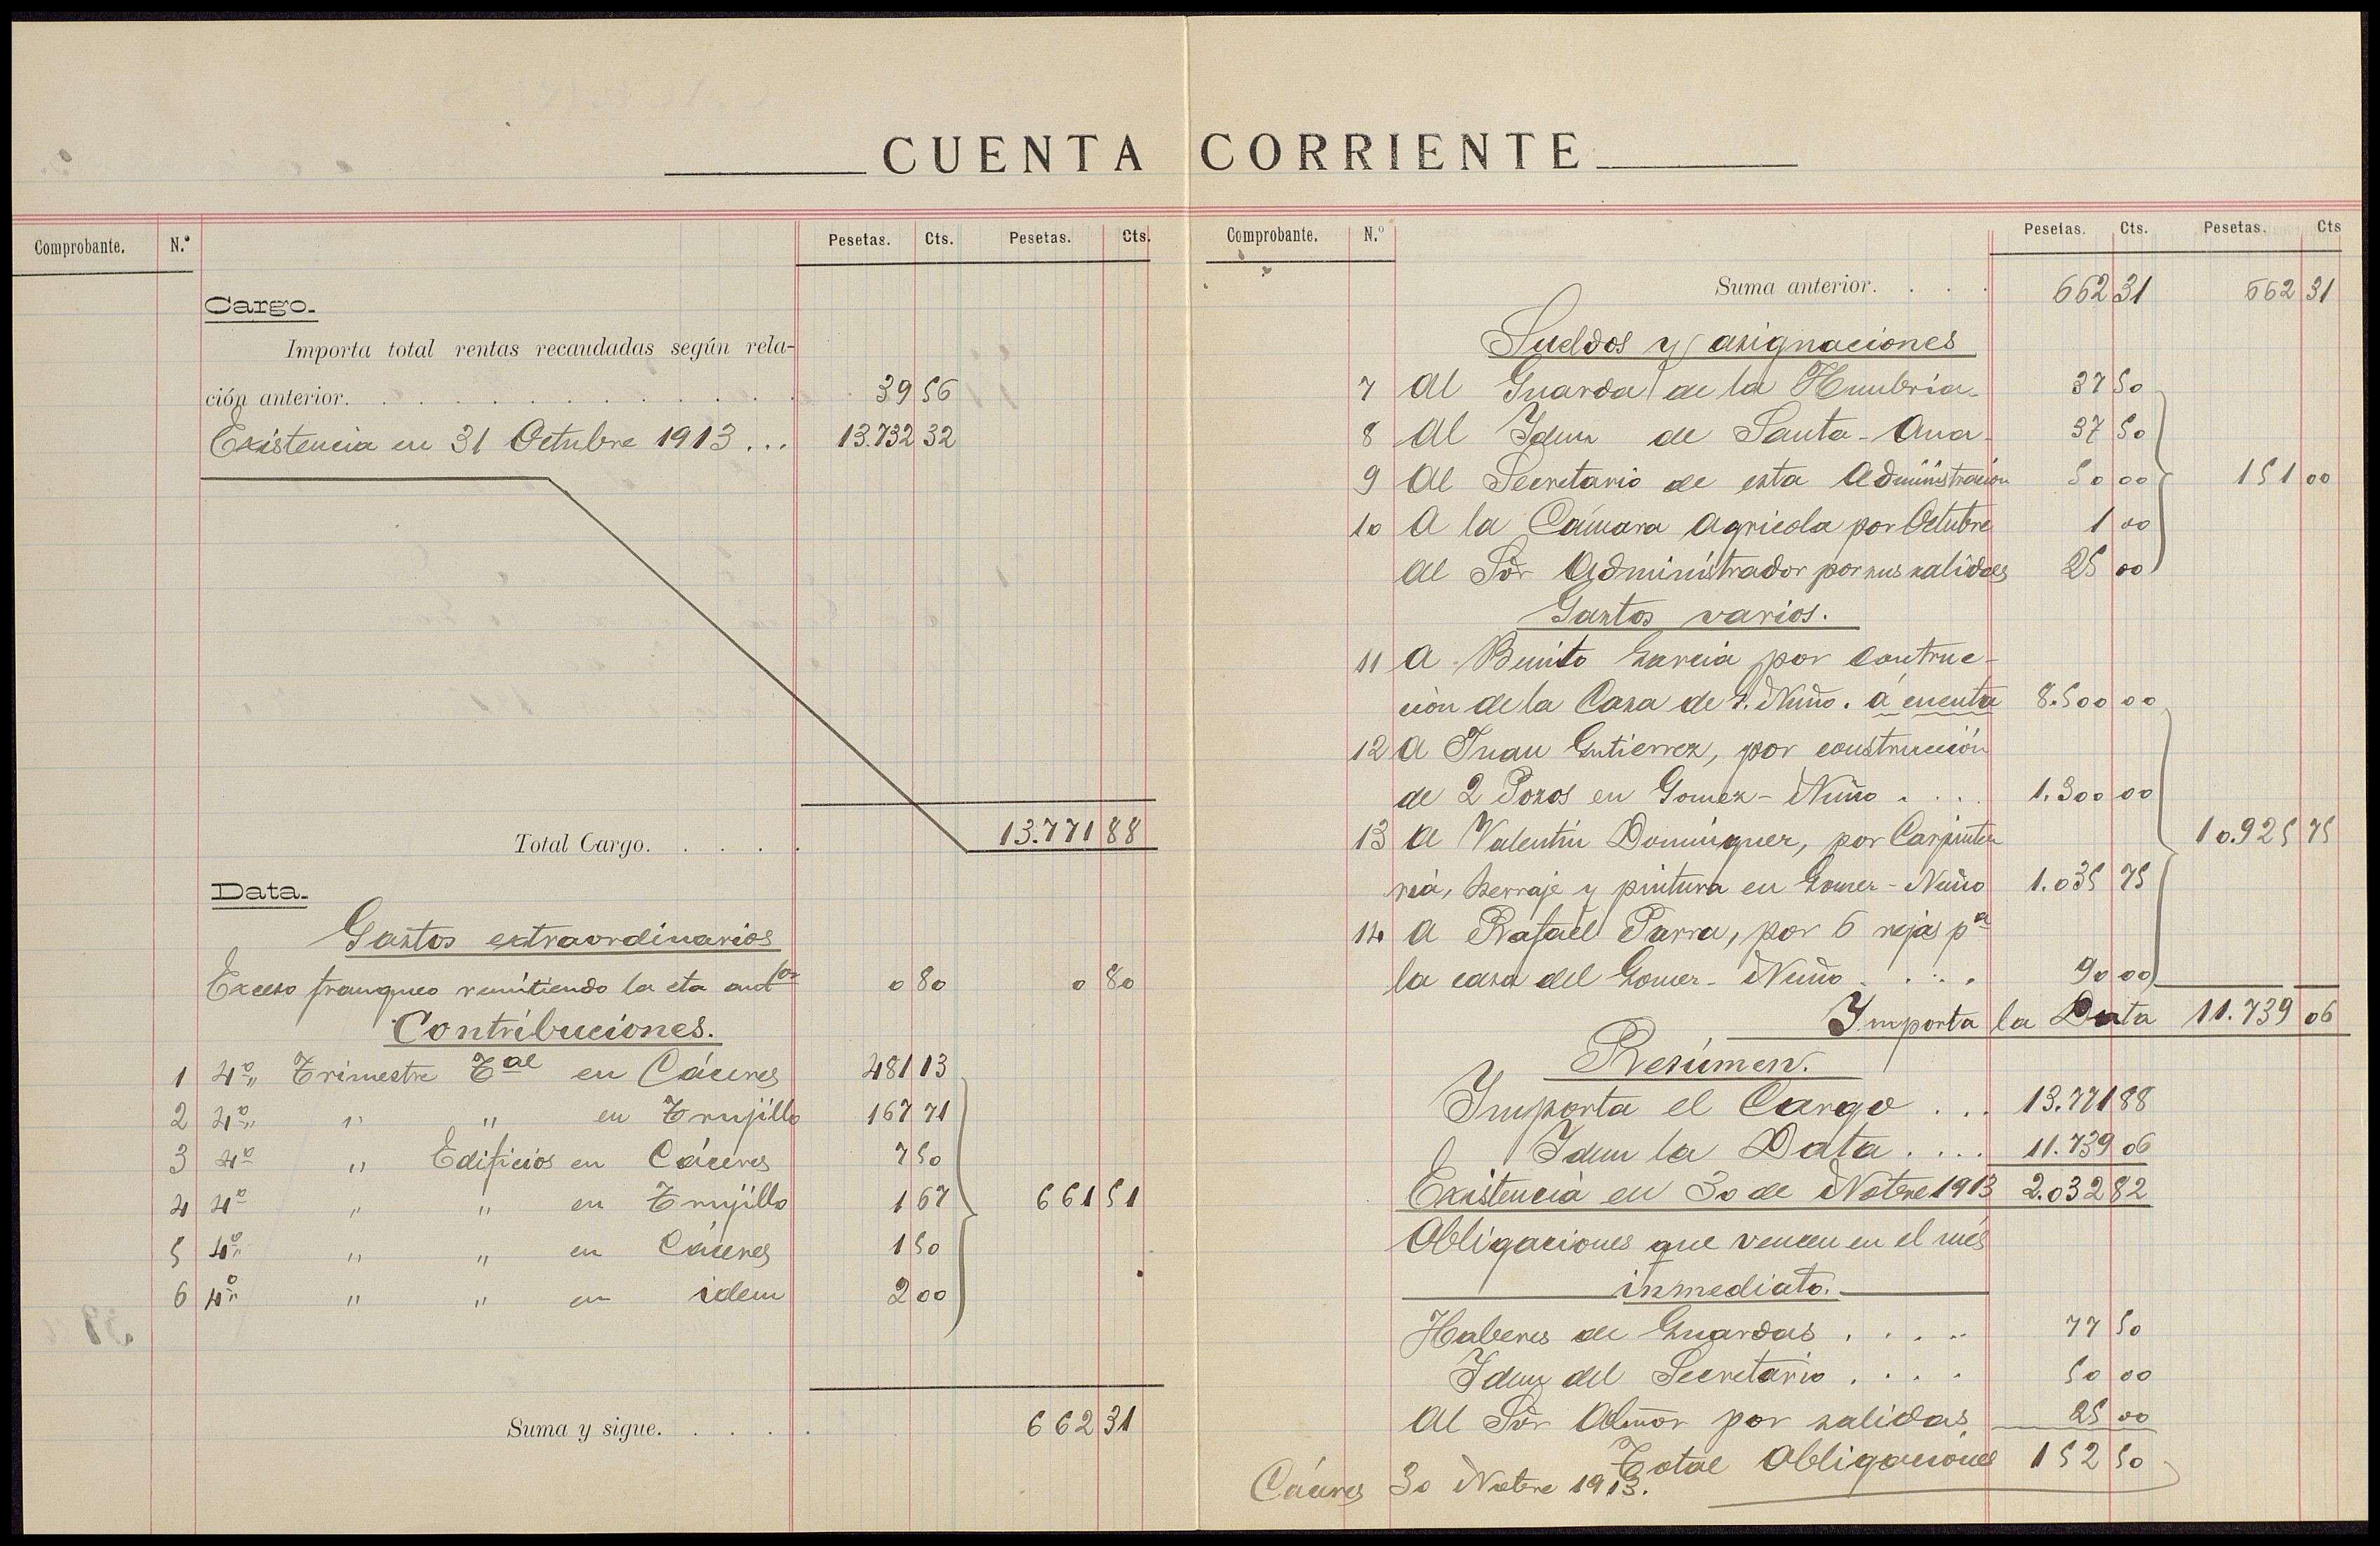 CUENTA CORRIENTE
Comprobante. N.º Pesetas. Cts. Pesetas. Cts.
Cargo.
Importa total rentas recaudadas según rela-
ción anterior. 39 56
Existencia en 31 Octubre 1913 ... 13.732 32
Total Cargo. 13.771 88
Data.
Gastos extraordinarios
Exceso franqueo remitiendo la cta antor 0 80 0 80
Contribuciones.
1 4º " Trimestre Tal en Cáceres 481 13
2 4º " " " en Trujillo 167 71
3 4º " Edificios en Cáceres 7 50
4 4º " " en Trujillo 1 67 661 51
5 4º " " " en Cáceres 1 50
6 4º " " " en idem 2 00
Suma y sigue. 662 31
Comprobante. N.º Pesetas. Cts. Pesetas. Cts
Suma anterior. 662 31 662 31
Sueldos y asignaciones
7 Al Guarda de la Humbria 37 50
8 Al Idem de Santa-Ana 37 50
9 Al Secretario de esta Administración 50 00 151 00
10 A la Cámara Agricola por Octubre 1 00
Al Sor Administrador por sus salidas 25 00
Gastos varios.
11 A Benito Garcia por contruc-
ción de la Casa de G. Nuño. á cuenta 8.500 00
12 A Juan Gutierrez, por construcción
de 2 Pozos en Gomez-Nuño . . . . 1.300 00
13 A Valentin Dominguez, por Carpinte
ria, herraje y pintura en Gomez-Nuño 1.035 75 10.925 75
14 A Rafael Parra, por 6 rejas pª
la casa del Gomez-Nuño . . . . 90 00
Importa la Data 11.739 06
Resúmen.
Importa el Cargo ... 13.771 88
Idem la Data .... 11.739 06
Existencia en 30 de Novbre 1913 2.032 82
Obligaciones que vencen en el més
inmediato.
Haberes de Guardas . . . . . 77 50
Idem del Secretario . . . . 50 00
Al Sor Admor por salidas 25 00
Total Obligaciones 152 50
Cáceres 30 Novbre 1913.